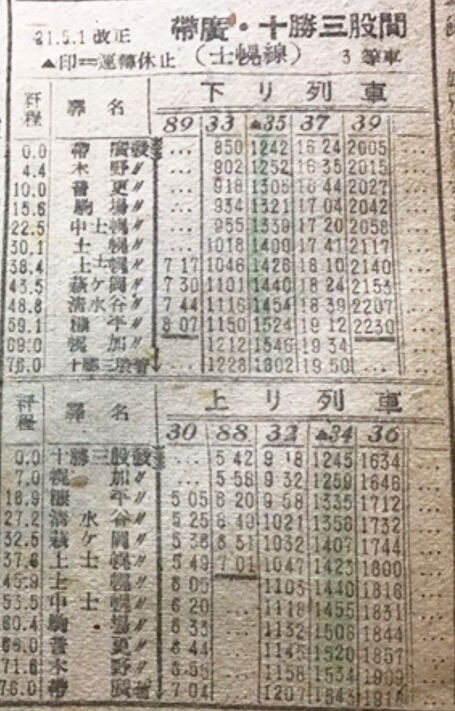 帶廣・十勝三股間
21.5.1 改正 (士幌線)
▲印=運轉休止 3 等車
粁程 驛名 下り列車
89 33 ▲35 37 39
0.0 帶廣發 ... 850 1242 16 24 2005
4.4 木野〃 ... 902 1252 16 35 2015
10.0 音更〃 ... 918 1305 16 44 2027
15.6 駒場〃 ... 934 1321 17 04 2042
22.5 中士幌〃 ... 955 1339 17 20 2058
30.1 士幌〃 ... 1018 1400 17 41 2117
38.4 上士幌〃 7 17 1046 1426 18 10 2140
43.5 萩ケ岡〃 7 30 1101 1440 18 24 2153
48.8 清水谷〃 7 44 1116 1454 18 39 2207
59.1 糠平〃 8 07 1150 1524 19 12 2230
69.0 幌加〃 1212 1546 19 34
76.0 十勝三股着 1228 1602 19 50 ...
粁程 驛名 上り列車
30 88 32 ▲34 36
0.0 十勝三股發 ... 5 42 9 18 1245 1634
7.0 幌加〃 ... 5 56 9 32 1259 1646
18.9 糠平〃 5 05 6 20 9 58 1335 1712
27.2 清水谷〃 5 25 6 40 1021 1356 1732
32.5 萩ケ岡〃 5 36 6 51 1032 1407 1744
37.6 上士幌〃 5 49 7 01 1047 1423 1800
45.9 士幌〃 6 05 1103 1440 1816
53.5 中士幌〃 6 20 ... 1118 1455 1831
60.4 駒場〃 6 33 ... 1132 1508 1844
66.0 音更〃 6 44 ... 1145 1520 1857
71.6 木野〃 6 56 ... 1158 1534 1909
76.0 帶廣着 7 04 ... 1207 1543 1914